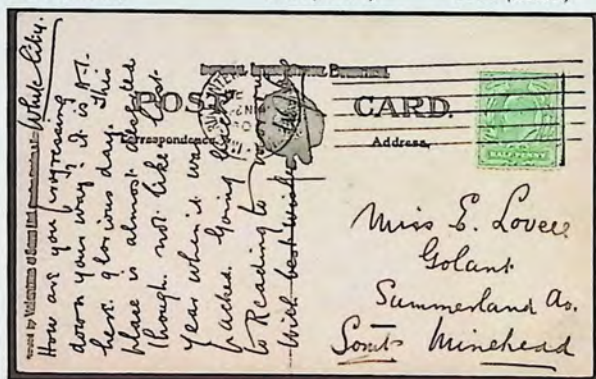 White City.
How are you progressing
down your way? it is A-1.
here. glorious day. This
place is almost deserted
though not like last
year when it was
packed. Going back
to Reading to
With best wishes
POST CARD.
Correspondence.
Address.
HALFPENNY
Miss E. Lovell
Golant
Summerland Av.
Somt Minehead